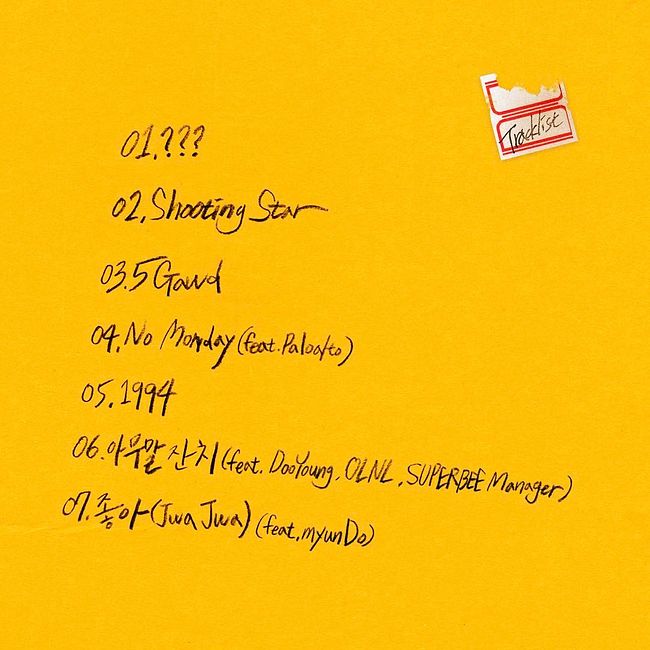 Tracklist
01.???
02.Shooting Star
03.5 Gawd
04.No Monday (feat.Paloalto)
05.1994
06.아무말 잔치 (feat. DooYoung, OLNL, SUPERBEE Manager)
07.좋아 (Jwa Jwa) (feat.myunDo)